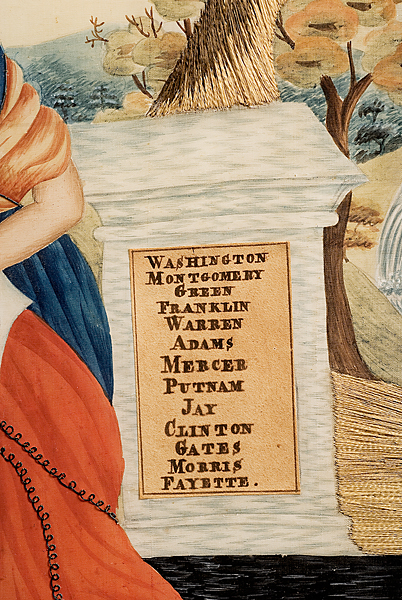 WASHINGTON
MONTGOMERY
GREEN
FRANKLIN
WARREN
ADAMS
MERCER
PUTNAM
JAY
CLINTON
GATES
MORRIS
FAYETTE.